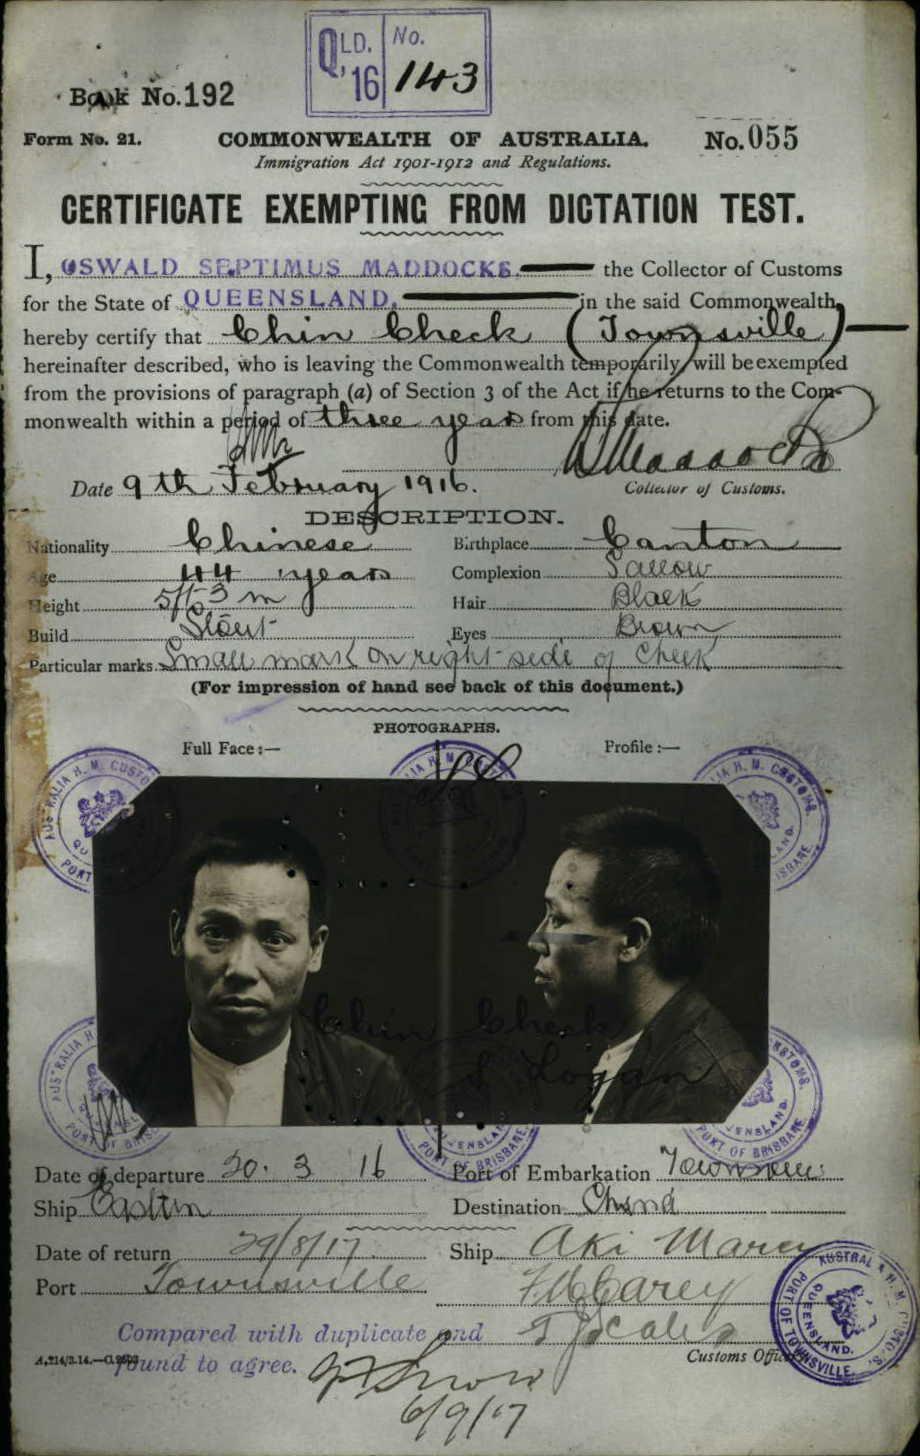 QLD. No.
'16 143
Book No. 192
Form No. 21. COMMONWEALTH OF AUSTRALIA. No. 055
Immigration Act 1901-1912 and Regulations.
CERTIFICATE EXEMPTING FROM DICTATION TEST.
I, OSWALD SEPTIMUS MADDOCKS. the Collector of Customs
for the State of QUEENSLAND. in the said Commonwealth,
hereby certify that Chin Check (Townsville)
hereinafter described, who is leaving the Commonwealth temporarily, will be exempted
from the provisions of paragraph (a) of Section 3 of the Act if he returns to the Com-
monwealth within a period of three years from this date.
Maddocks
Date 9th February 1916. Collector of Customs.
DESCRIPTION.
Nationality Chinese Birthplace Canton
Age 44 years Complexion Sallow
Height 5ft 3 in Hair Black
Build Stout Eyes Brown
Particular marks Small mark on right side of cheek
(For impression of hand see back of this document.)
PHOTOGRAPHS.
Full Face:— Profile:—
AUSTRALIA H. M. CUSTOMS. QUEENSLAND. PORT OF BRISBANE
Chin Check
Logan
Date of departure 20. 3 16 Port of Embarkation Townsville
Ship Eastern Destination China
Date of return 29/8/17. Ship Aki Maru
Port Townsville
Compared with duplicate and
found to agree.
Customs Officer
AUSTRALIA H. M. CUSTOMS. QUEENSLAND. PORT OF TOWNSVILLE.
6/9/17